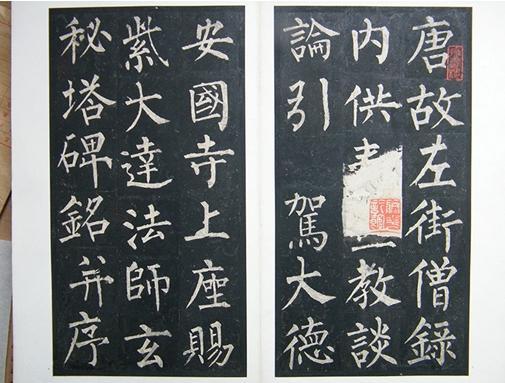 唐故左街僧錄
内供教談
論引駕大德
安國寺上座賜
紫大達法師玄
秘塔碑銘并序